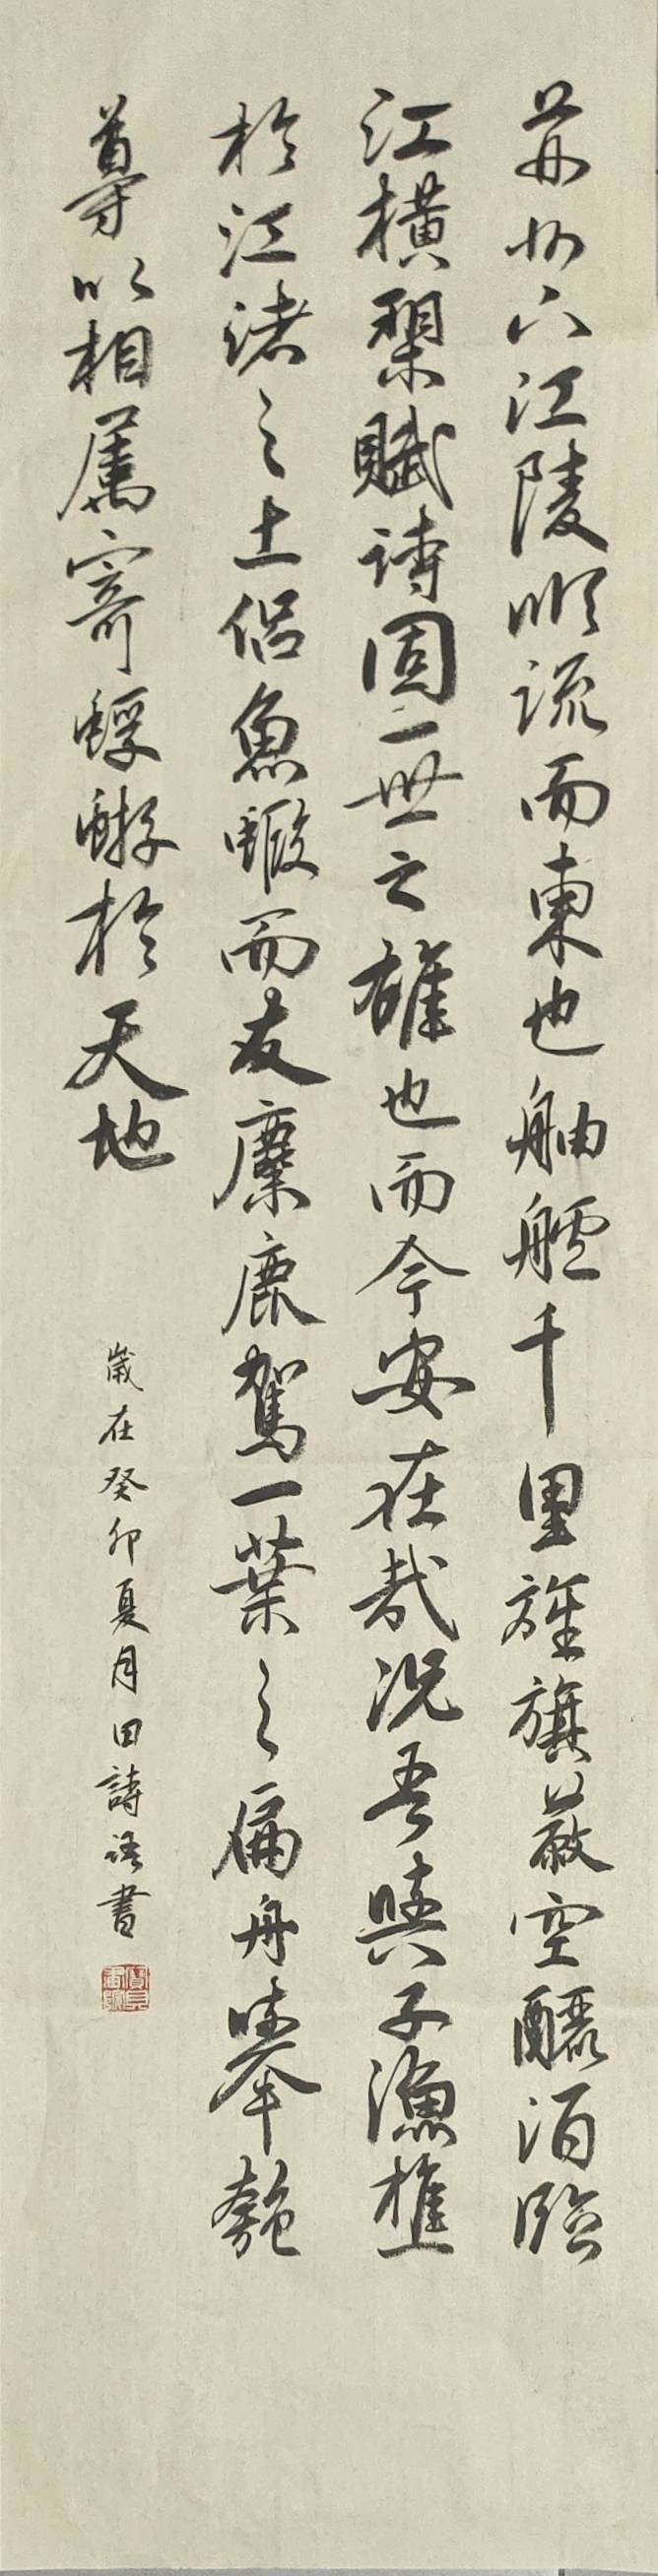 荊州下江陵順流而東也舳艫千里旌旗蔽空釃酒臨
江橫槊賦詩固一世之雄也而今安在哉況吾與子漁樵
於江渚之上侶魚蝦而友麋鹿駕一葉之扁舟舉匏
尊以相屬寄蜉蝣於天地
歲在癸卯夏月田詩語書